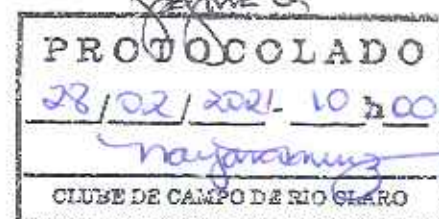 PROTOCOLADO
28/02/2021- 10 h 00
CLUBE DE CAMPO DE RIO CLARO